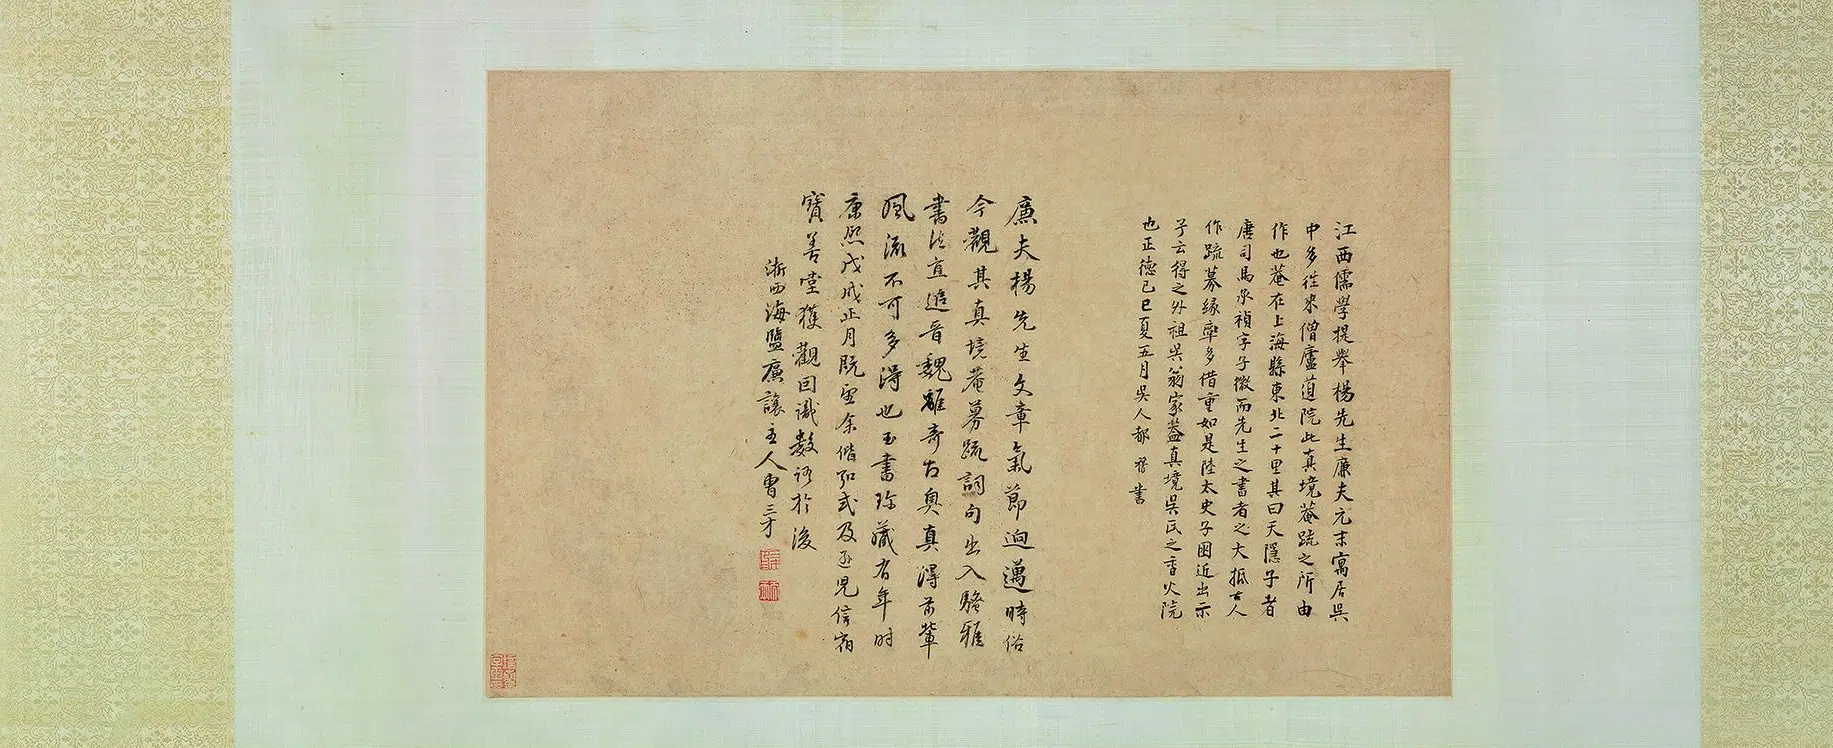 江西儒學提舉楊先生廉夫元末寓居吳
中多往來僧廬道院此真境菴疏之所由
作也菴在上海縣東北二十里其曰天隱子者
唐司馬承禎字子微而先生之書者之大抵古人
作疏募緣率多借重如是陸太史子困近出示
予云得之外祖吳翁家蓋真境吳氏之香火院
也正德己巳夏五月吳人都穆書
廉夫楊先生文章氣節迥邁時俗
今觀其真境菴募疏詞句出入騷雅
書法直追晉魏雖奇古奧真得前輩
風流不可多得也玉書珍藏有年时
康熙戊戌正月既望余偕弘式及兒信宿
寶善堂獲觀回識數語於後
浙西海鹽廉讓主人曹三才